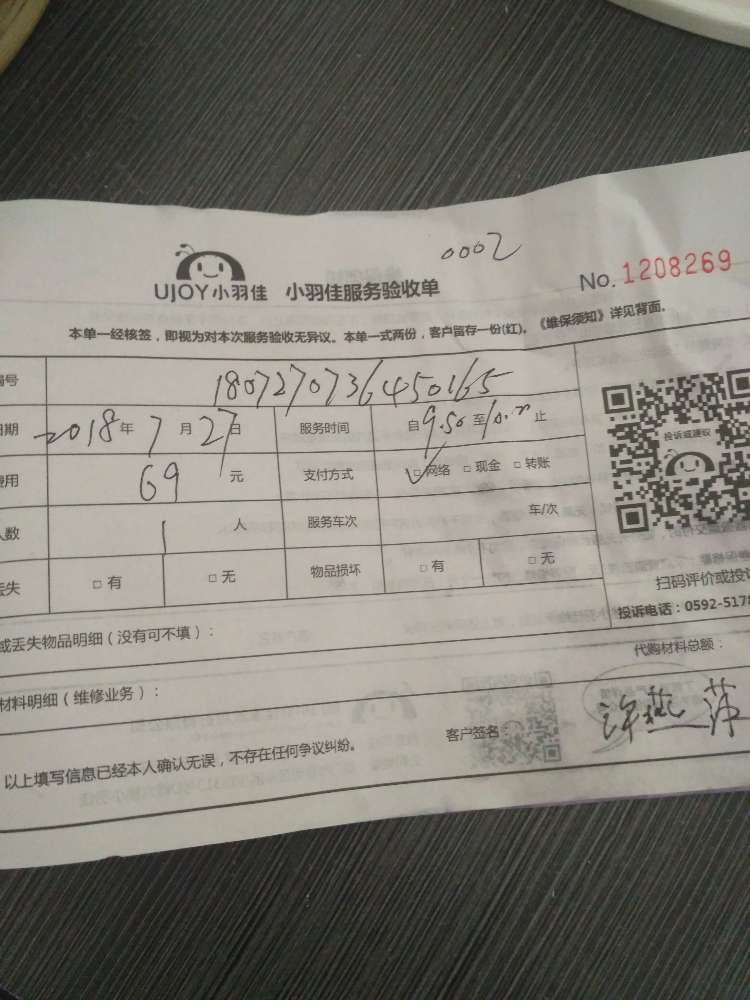 0002
UJOY小羽佳 小羽佳服务验收单 No. 1208269
本单一经核签，即视为对本次服务验收无异议。本单一式两份，客户留存一份(红)。《维保须知》详见背面。
编号 1807270736450165
日期 2018年7月27日 服务时间 自9.50至 止
费用 69元 支付方式 网络 现金 转账
人数 1人 服务车次 车/次
丢失 有 无 物品损坏 有 无
投诉或建议
扫码评价或投诉
投诉电话：0592-5178
或丢失物品明细（没有可不填）：
代购材料总额：
材料明细（维修业务）：
以上填写信息已经本人确认无误，不存在任何争议纠纷。 客户签名： 许燕萍